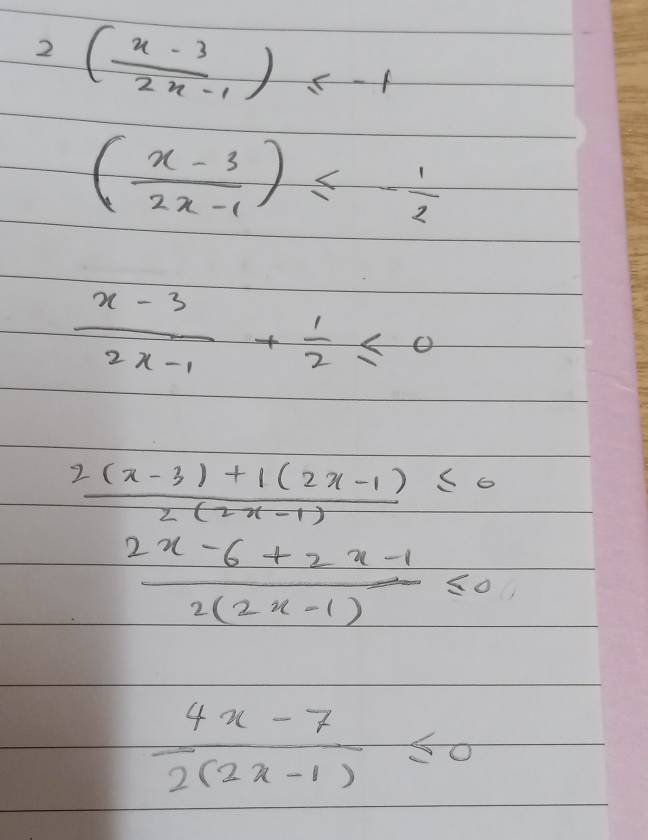 2 ( (x - 3) / (2x - 1) ) ≤ -1
( (x - 3) / (2x - 1) ) ≤ - 1/2
(x - 3) / (2x - 1) + 1/2 ≤ 0
(2(x-3) + 1(2x-1)) / (2(2x-1)) ≤ 0
(2x - 6 + 2x - 1) / (2(2x-1)) ≤ 0
(4x - 7) / (2(2x-1)) ≤ 0